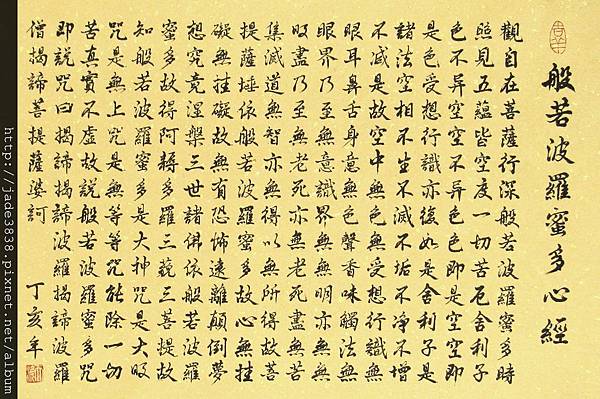 般若波羅蜜多心經
觀自在菩薩行深般若波羅蜜多時
照見五蘊皆空度一切苦厄舍利子
色不异空空不异色色即是空空即
是色受想行識亦復如是舍利子是
諸法空相不生不滅不垢不净不增
不減是故空中無色無受想行識無
眼耳鼻舌身意無色聲香味觸法無
眼界乃至無意識界無無明亦無無
明盡乃至無老死亦無老死盡無苦
集滅道無智亦無得以無所得故菩
提薩埵依般若波羅蜜多故心無挂
礙無挂礙故無有恐怖遠離顛倒夢
想究竟涅槃三世諸佛依般若波羅
蜜多故得阿耨多羅三藐三菩提故
知般若波羅蜜多是大神咒是大明
咒是無上咒是無等等咒能除一切
苦真實不虛故說般若波羅蜜多咒
即說咒曰揭諦揭諦波羅揭諦波羅
僧揭諦菩提薩婆訶
丁亥年
http://jade3838.pixnet.net/album